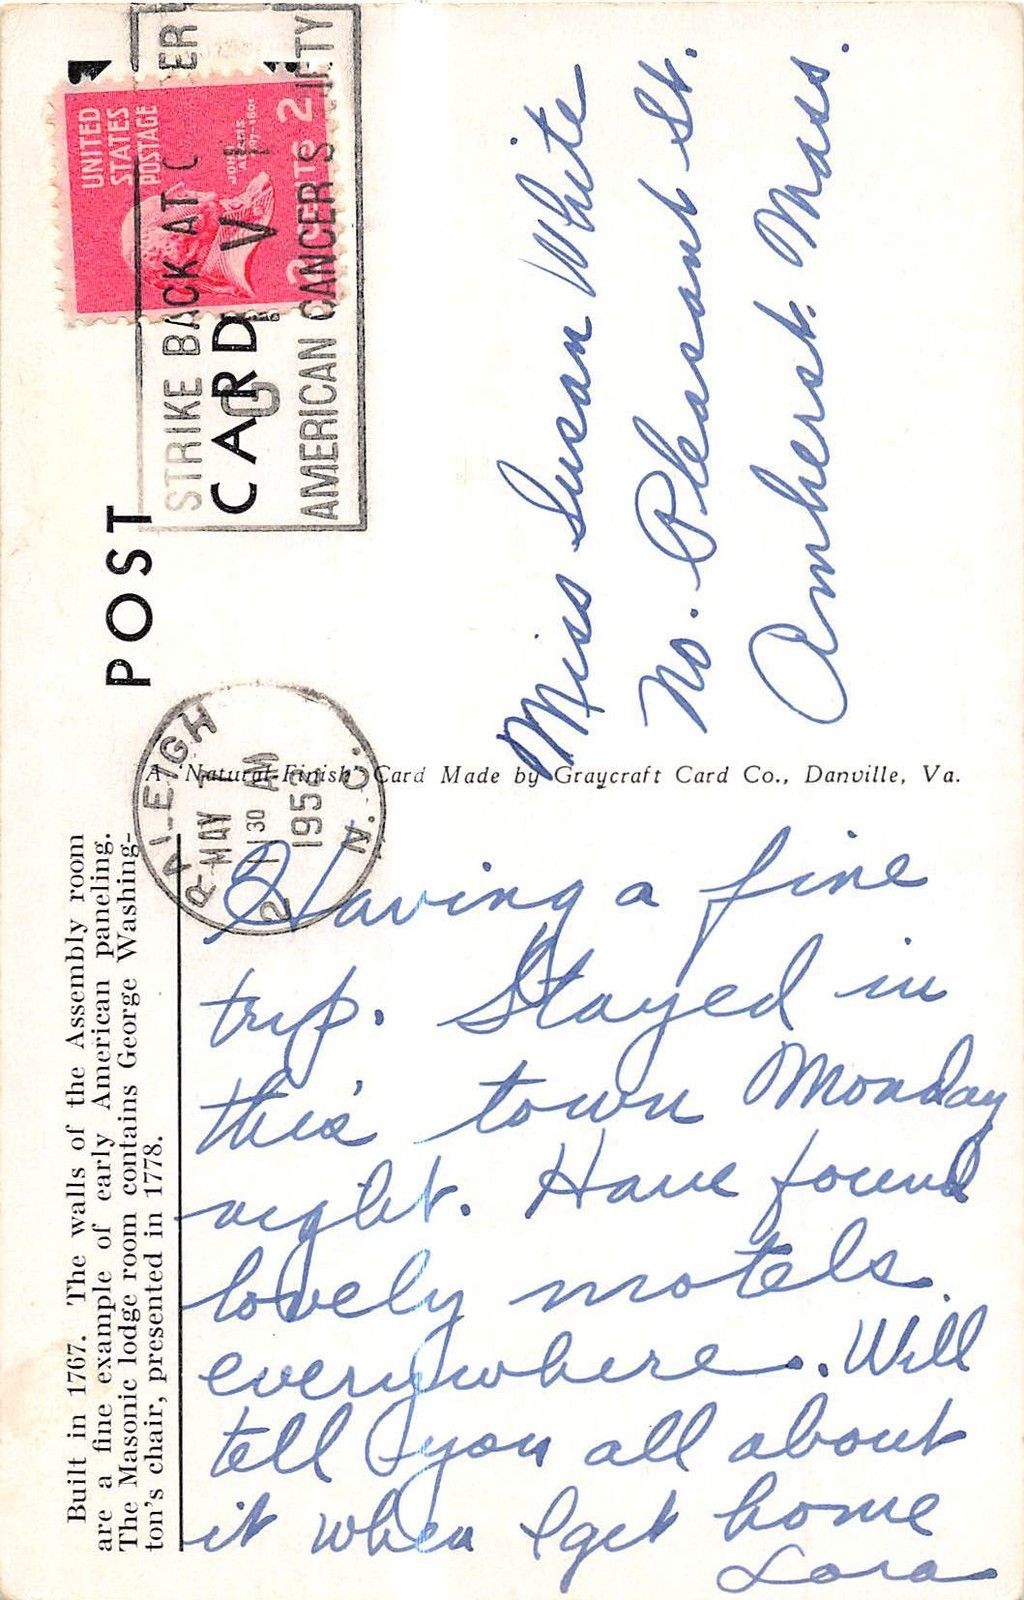 Built in 1767. The walls of the Assembly room
are a fine example of early American paneling.
The Masonic lodge room contains George Washing-
ton's chair, presented in 1778.
POST
CARD
UNITED
STATES
POSTAGE
JOHN
ADAMS
2 CENTS 2
STRIKE BACK AT
AMERICAN CANCER SOCIETY
RALEIGH
N.C.
MAY
AM
A "Natural-Finish" Card Made by Graycraft Card Co., Danville, Va.
Miss Susan White
No. Pleasant St.
Amherst. Mass.
Having a fine
trip. Stayed in
this town Monday
night. Have found
lovely motels
everywhere. Will
tell you all about
it when I get home
Lora